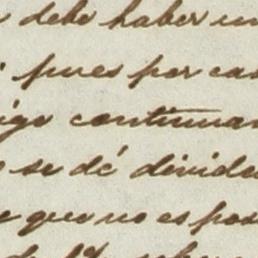 debe haber un
pues por cas
continuar
se dé divid
que no es pos